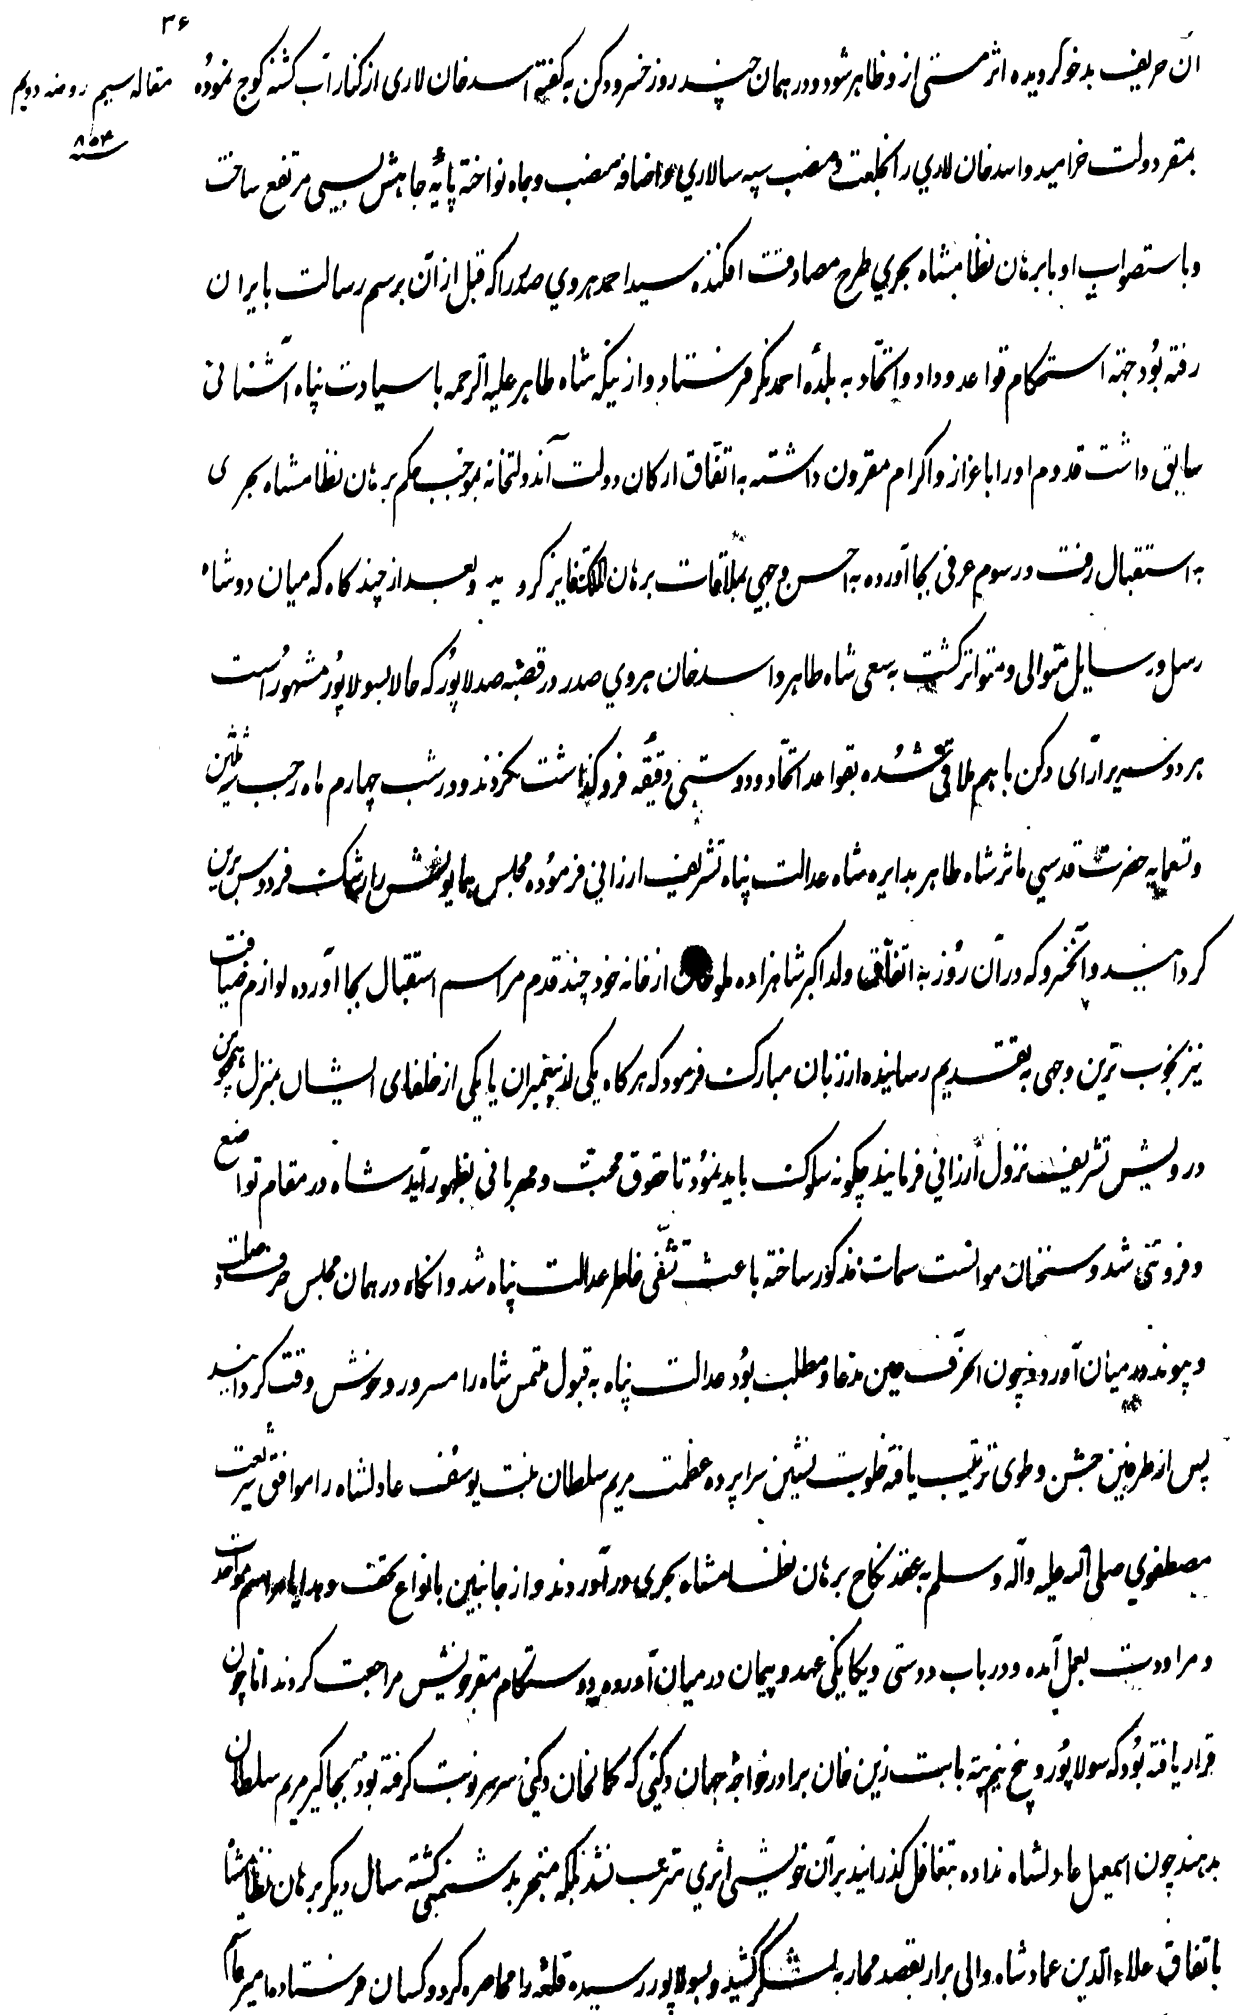 ۳۶
ان حریف بدخو کردیده اثر مستی از و ظاهر شود و در همان چند روز خسرو دکن به کفته اسدخان لاری از کنار آب کشنه کوچ نموده
مقاله سیم روضه دویم
۸۵۴
بمقر دولت خرامید و اسدخان لاری را بخلعت و منصب سپه سالاری و اضافه منصب و جاه نواخته پایهٔ جاهش بسی مرتفع ساخت
و باستصواب او با برهان نظامشاه بحری طرح مصادقت افکنده سید احمد هروی صدر را که قبل از آن برسم رسالت بایران
رفته بود جهته استحکام قواعد وداد و اتحاد به بلدهٔ احمدنکر فرستاد و از نیکه شاه طاهر علیه الرحمه با سیادت پناه آشنائی
سابق داشت قدوم او را باعزاز و اکرام مقرون داشته به اتفاق ارکان دولت آندولتخانه بموجب حکم برهان نظامشاه بحری
به استقبال رفت و رسوم عرفی بجا آورده به احسن وجهی بملاقات برهان الملک فایز کردید و بعد از چند کاه که میان دو شاه
رسل و رسایل متوالی و متواتر کشت بسعی شاه طاهر و اسدخان هروی صدر در قصبه صدلاپور که حالا بسولاپور مشهور است
هر دو سریر آرای دکن با هم ملاقی شده بقواعد اتحاد و دوستی دقیقه فروکذاشت نکردند و در شب چهارم ماه رجب سنه ثلثین
و تسعمایه حضرت قدسی مآثر شاه طاهر بدایره شاه عدالت پناه تشریف ارزانی فرموده مجلس همایونش رشک فردوس برین
کردانید و آنخسرو که در آن روز به اتفاق ولد اکبر شاهزاده ملوخان از خانه خود چند قدم مراسم استقبال بجا آورده لوازم ضیافت
نیز بخوب ترین وجهی به تقدیم رسانیده از زبان مبارک فرمود که هر کاه یکی از پیغمبران یا یکی از خلفای ایشان بمنزل همچو من
درویش تشریف نزول ارزانی فرمایند چکونه سلوک باید نمود تا حقوق محبت و مهربانی بظهور آید شاه در مقام تواضع
و فروتنی شد و سخنان موانست سمات مذکور ساخته باعث تشفی خاطر عدالت پناه شد و انکاه در همان مجلس حرف وصلت
و پیوند در میان آورد و چون الحرف عین مدعا و مطلب بود عدالت پناه به قبول ملتمس شاه را مسرور و خوش وقت کردانید
پس از طرفین جشن و طوی ترتیب یافته خلوت نشین سراپرده عظمت مریم سلطان بنت یوسف عادلشاه را موافق شریعت
مصطفوی صلی الله علیه وآله وسلم به عقد نکاح برهان نظامشاه بحری در آوردند و از جانبین بانواع تحف و هدایا مراسم موالات
و مراودت بعمل آمده و در باب دوستی و یکانکی عهد و پیمان در میان آورده دوستکام بمقر خویش مراجعت کردند اما چون
قرار یافته بود که سولاپور و پنج نیم پته بابت زین خان برادر خواجه جهان دکنی که کمالخان دکنی سرنوبت کرفته بود بجاکیر مریم سلطان
بدهند چون اسمعیل عادلشاه نداده بتغافل کذرانید بر آن خویشی اثری مترتب نشد بلکه منجر بدشمنی کشته سال دیکر برهان نظامشاه
باتفاق علاءالدین عمادشاه والی برار بقصد محاربه لشکر کشید و بسولاپور رسیده قلعه را محاصره کرد و کسان فرستاده امیر قاسم